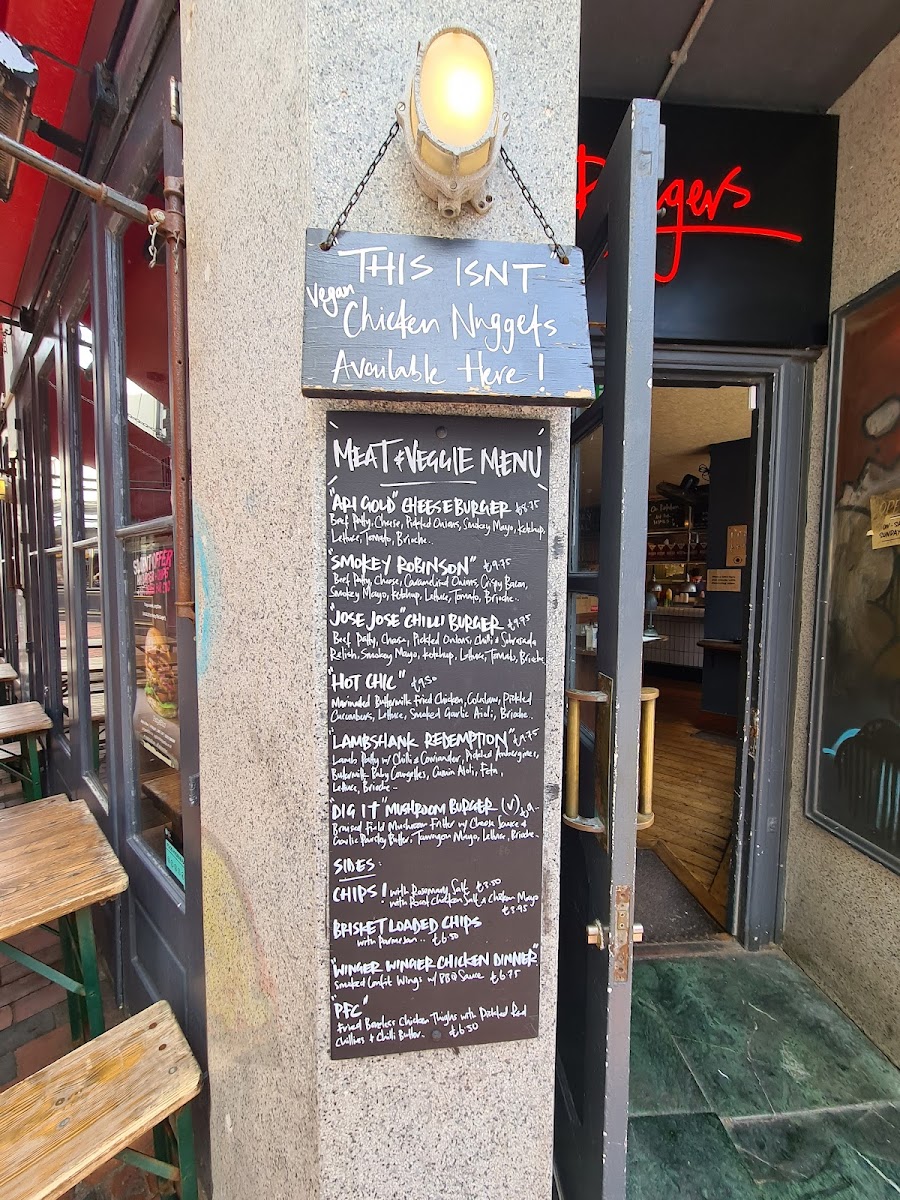 THIS ISNT
Vegan
Chicken Nuggets
Available Here!
Burgers
MEAT & VEGGIE MENU
"API GOLD" CHEESEBURGER £8.75
Beef Patty, Cheese, Pickled Onions, Smokey Mayo, Ketchup,
Lettuce, Tomato, Brioche.
"SMOKEY ROBINSON" £9.75
Beef Patty, Cheese, Caramelised Onions, Crispy Bacon,
Smokey Mayo, Ketchup, Lettuce, Tomato, Brioche.
"JOSE JOSE" CHILLI BURGER £9.75
Beef Patty, Cheese, Pickled Onions, Chilli & Sobrasada
Relish, Smokey Mayo, Ketchup, Lettuce, Tomato, Brioche
"HOT CHIC" £9.50
Marinaded Buttermilk Fried Chicken, Coleslaw, Pickled
Cucumbers, Lettuce, Smoked Garlic Aioli, Brioche.
"LAMBSHANK REDEMPTION"
Lamb Patty w/ Chilli & Coriander, Pickled Aubergines,
Buttermilk Baby Courgettes, Cumin Aioli, Feta,
Lettuce, Brioche -
"DIG IT" MUSHROOM BURGER (V) £9-
Braised Field Mushroom Fritter w/ Cheese Sauce &
Garlic Parsley Butter, Tarragon Mayo, Lettuce, Brioche-
SIDES:
CHIPS! with Rosemary Salt £3.50
with Roast Chicken Salt & Chicken Mayo
£3.95
BRISKET LOADED CHIPS
with Parmesan .. £6.50
"WINGER WINGER CHICKEN DINNER"
Smoked Confit Wings w/ BBQ Sauce £6.75
"PFC"
Fried Boneless Chicken Thighs with Pickled Red
Chillies & Chilli Butter. £6.50
OFFER